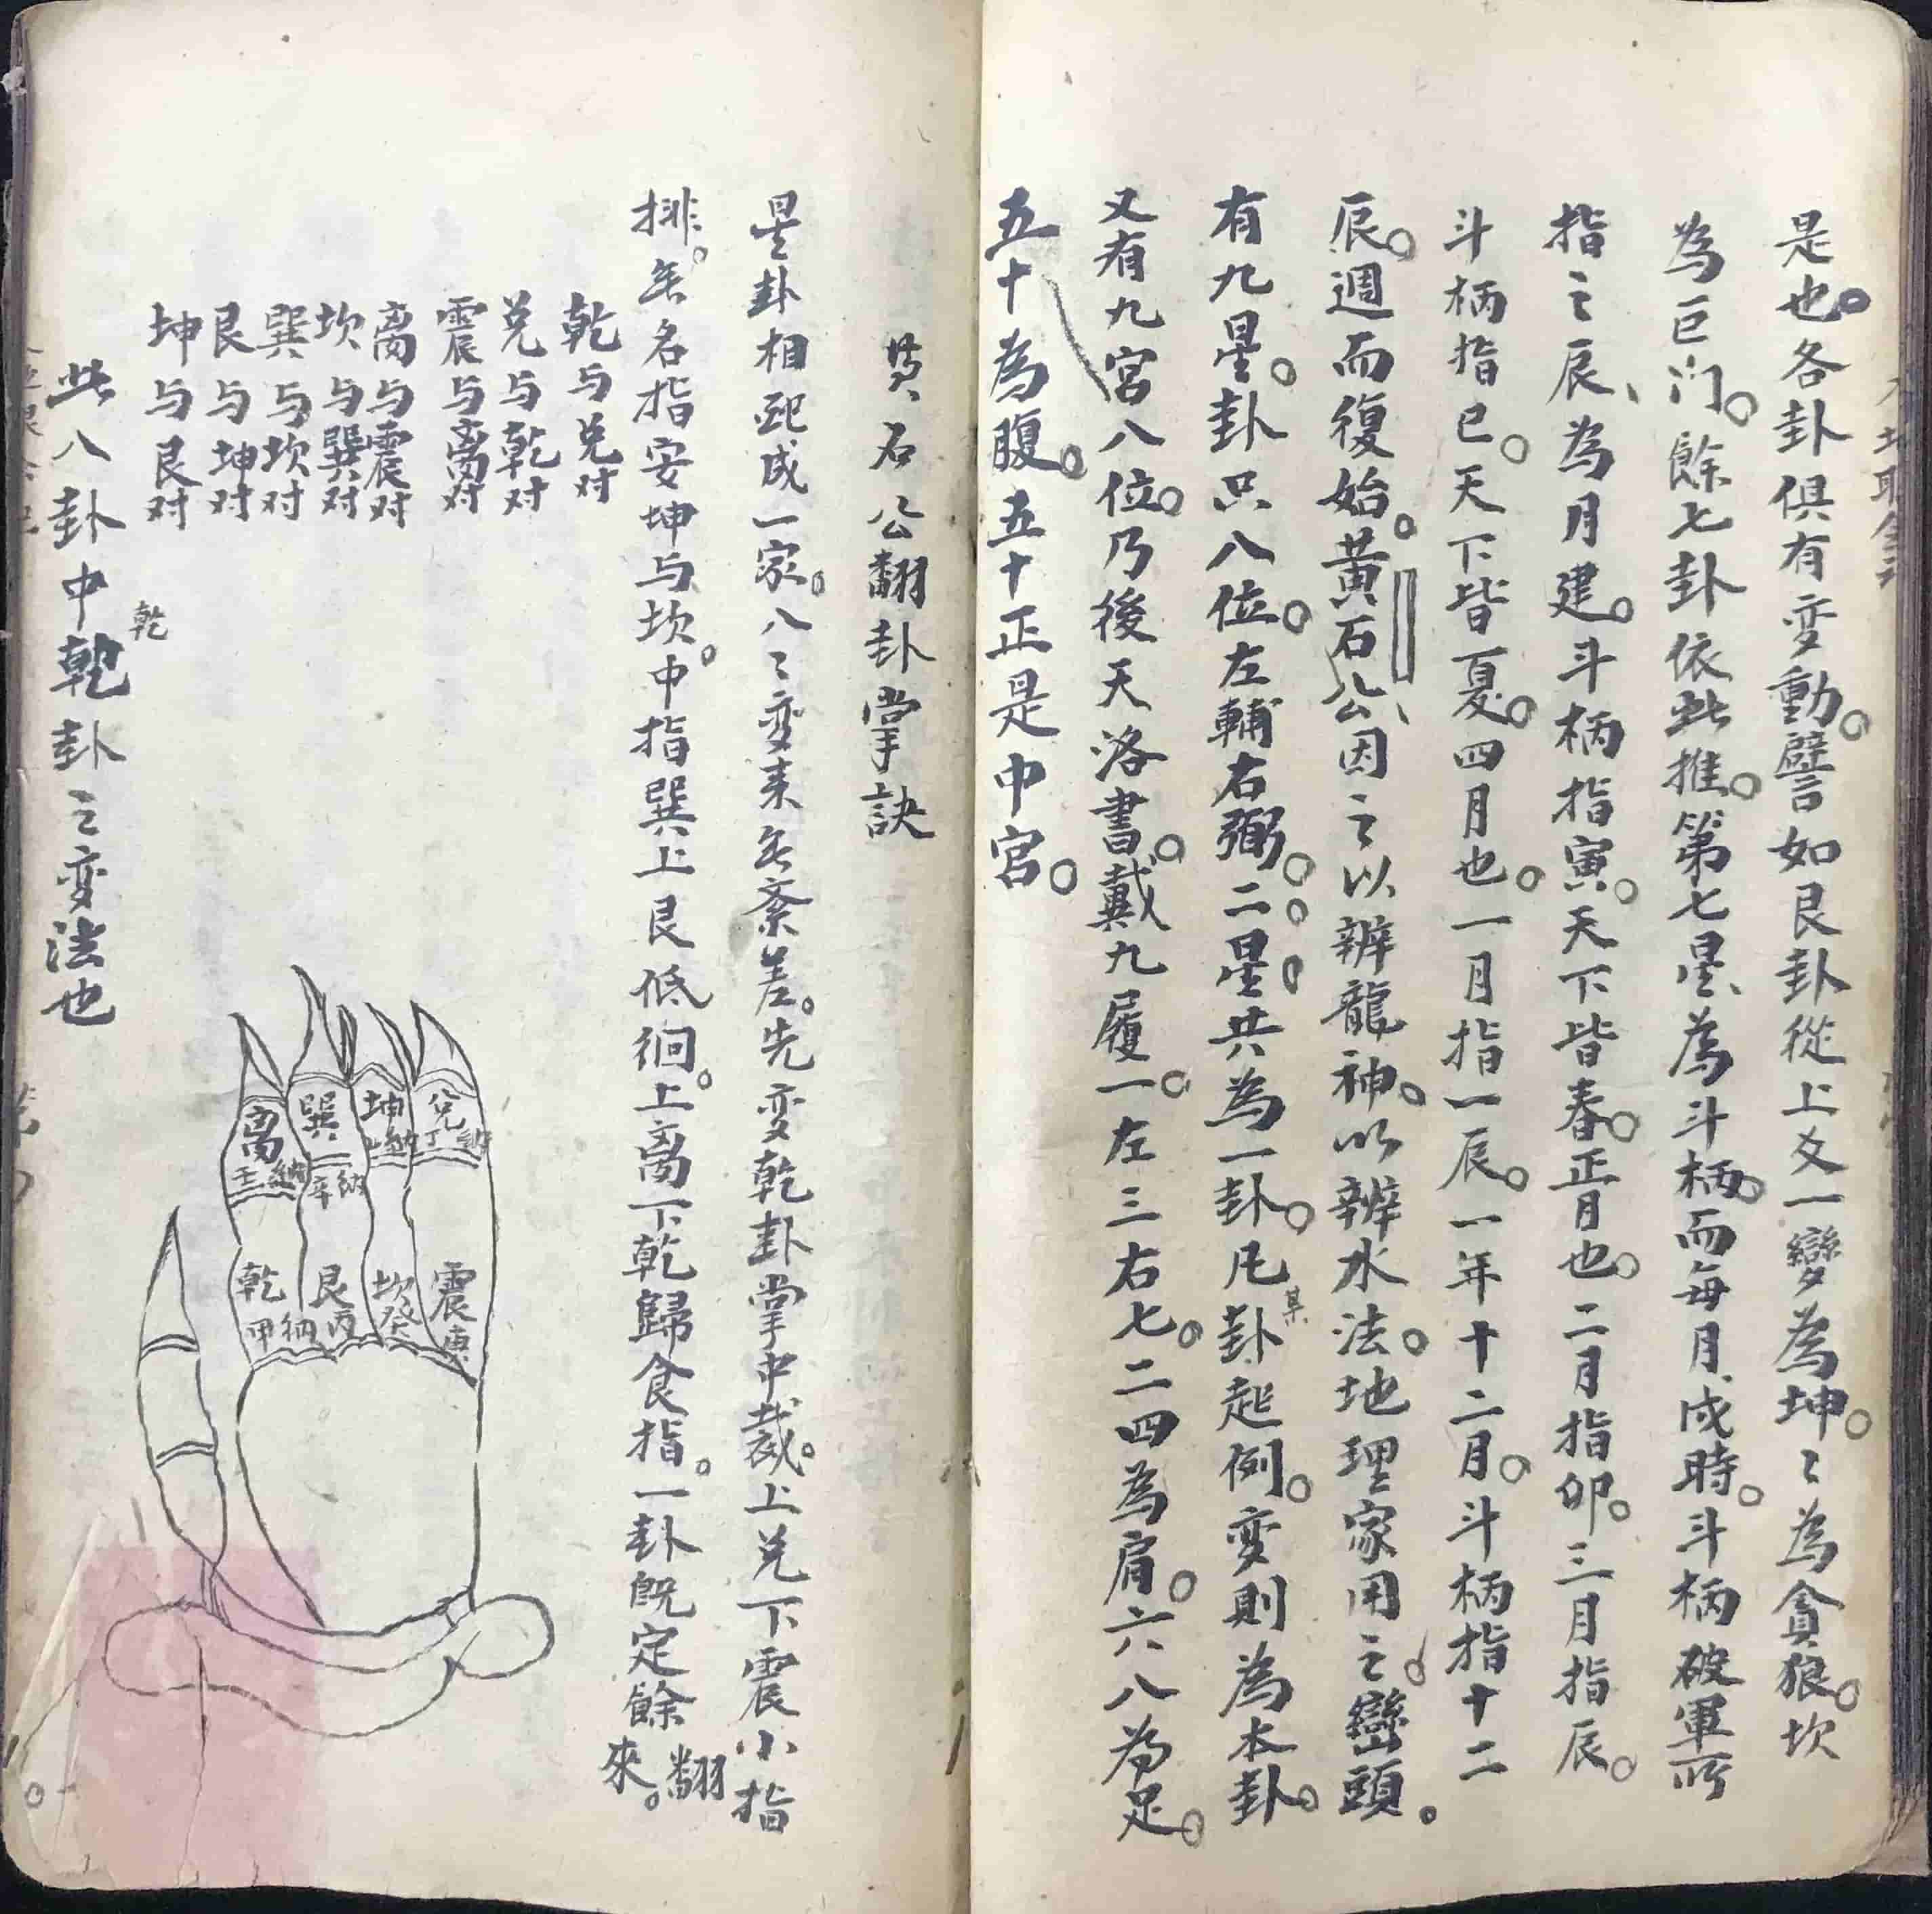 是也。各卦俱有変動。譬如艮卦從上爻一變為坤。〻為貪狼。坎
為巨门。餘七卦依此推。第七星、為斗柄。而每月、戌時。斗柄破軍所
指之辰、為月建。斗柄指寅。天下皆春。正月也。二月指卯。三月指辰。
斗柄指巳。天下皆夏。四月也。一月指一辰。一年十二月。斗柄指十二
辰。週而復始。黃石公、因之以辨龍神。以辨水法。地理家用之。巒頭。
有九星。卦只八位。左輔右弼。二星共為一卦。凡某卦起例。変則為本卦。
又有九宮八位。乃後天洛書。戴九履一。左三右七。二四為肩。六八為足。
五十為腹。五十正是中宮。
黄石公翻卦掌訣
星卦相配成一家。八〻変来无紊差。先変乾卦掌中裁。上兑下震小指
排。无名指安坤与坎。中指巽上艮低徊。上离下乾歸食指。一卦既定餘翻來。
乾与兑对
兑与乾对
震与离对
离与震对
坎与巽对
巽与坎对
艮与坤对
坤与艮对
此八卦中乾卦之変法也
乾
兑 納丁
坤 納
巽 納辛
离 納壬
震 庚
坎 癸
艮 丙
乾 納甲